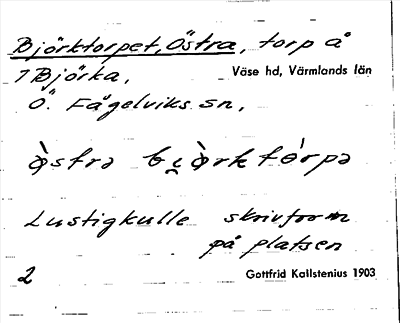 Björktorpet, Östra, torp å
1 Björka, Väse hd, Värmlands län
Ö. Fågelviks sn,
ò̜strə bi̯ò̜rktórpə
Lustigkulle skrivform
på platsen
2 Gottfrid Kallstenius 1903